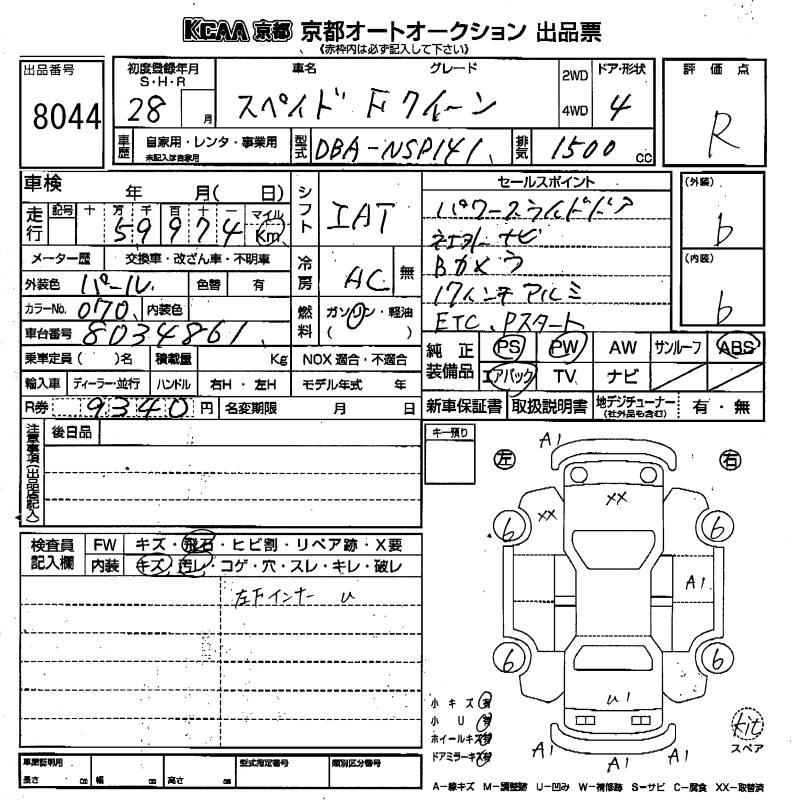 KCAA 京都 京都オートオークション 出品票
(赤枠内は必ず記入して下さい)
出品番号 8044
初度登録年月 S・H・R 28 月
車名 グレード
スペイド Fクイーン
2WD 4WD
ドア・形状 4
評価点 R
車歴 自家用・レンタ・事業用 未記入は自家用
型式 DBA-NSP141
排気 1500 cc
車検 年 月( 日)
シフト IAT
セールスポイント
パワースライドドア
ナビ
Bカメラ
17インチアルミ
ETC、Pスタート
(外装) b
(内装) b
走行 記号 十 万 千 百 十 一 マイル Km
59974
メーター歴 交換車・改ざん車・不明車
冷房 AC 無
外装色 パール 色替 有
カラーNo. 070 内装色
燃料 ガソリン・軽油 ( )
車台番号 8034861
純正装備品 PS PW AW サンルーフ ABS
エアバック TV ナビ
乗車定員( )名 積載量 Kg NOX適合・不適合
輸入車 ディーラー・並行 ハンドル 右H・左H モデル年式 年
R券 9340 円 名変期限 月 日
新車保証書 取扱説明書 地デジチューナー (社外品も含む) 有・無
注意事項(出品店記入)
後日品
キー預り
左 右
A1
XX XX
6 6
A1
6 6
U1
A1 A1 A1
検査員記入欄
FW キズ・飛石・ヒビ割・リペア跡・X要
内装 キズ・汚レ・コゲ・穴・スレ・キレ・破レ
左Fインナー U
小キズ 有
小U 有
ホイールキズ 有
ドアミラーキズ 有
kit
スペア
車庫証明用 長さ cm 幅 cm 高さ cm
型式指定番号 類別区分番号
A-線キズ M-調整跡 U-凹み W-補修跡 S-サビ C-腐食 XX-取替済